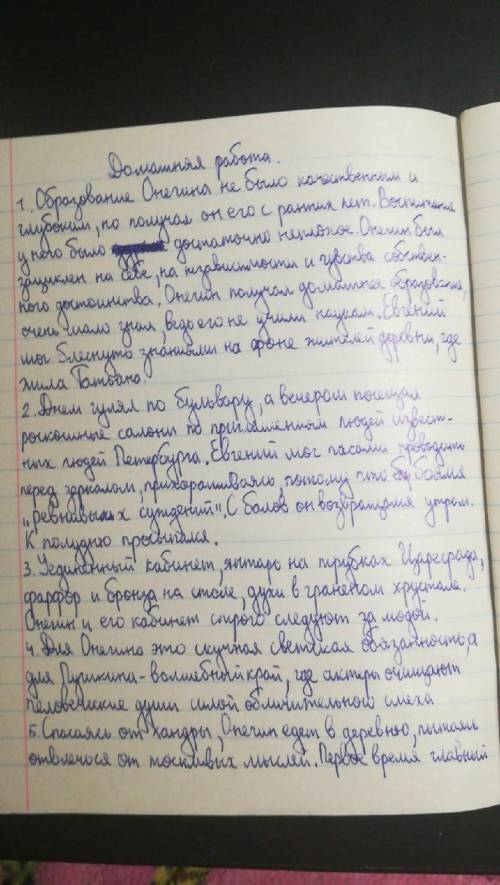 Домашняя работа.
1. Образование Онегина не было качественным и
глубоким, но получал он его с ранних лет. Воспитание
у него было достаточно неплохое. Онегин был
зациклен на себе, на независимости и чувства собствен-
ного достоинства. Онегин получал домашнее образование,
очень мало знал, ведь его не учили наукам. Евгений
мог блеснуть знаниями на фоне жителей деревни, где
жила Татьяна.
2. Днем гулял по бульвару, а вечером посещал
роскошные салоны по приглашениям людей извест-
ных людей Петербурга. Евгений мог часами проводить
перед зеркалом, прихорашиваясь, потому что боялся
"ревнивых суждений". С балов он возвращался утром.
К полудню просыпался.
3. Уединенный кабинет, янтарь на трубках Цареграда,
фарфор и бронза на столе, духи в граненом хрустале.
Онегин и его кабинет строго следуют за модой.
4. Для Онегина это скучная светская обязанность, а
для Пушкина - волшебный край, где актеры очищают
человеческие души силой обличительного смеха
5. Спасаясь от хандры, Онегин едет в деревню, пытаясь
отвлечься от тоскливых мыслей. Первое время главный